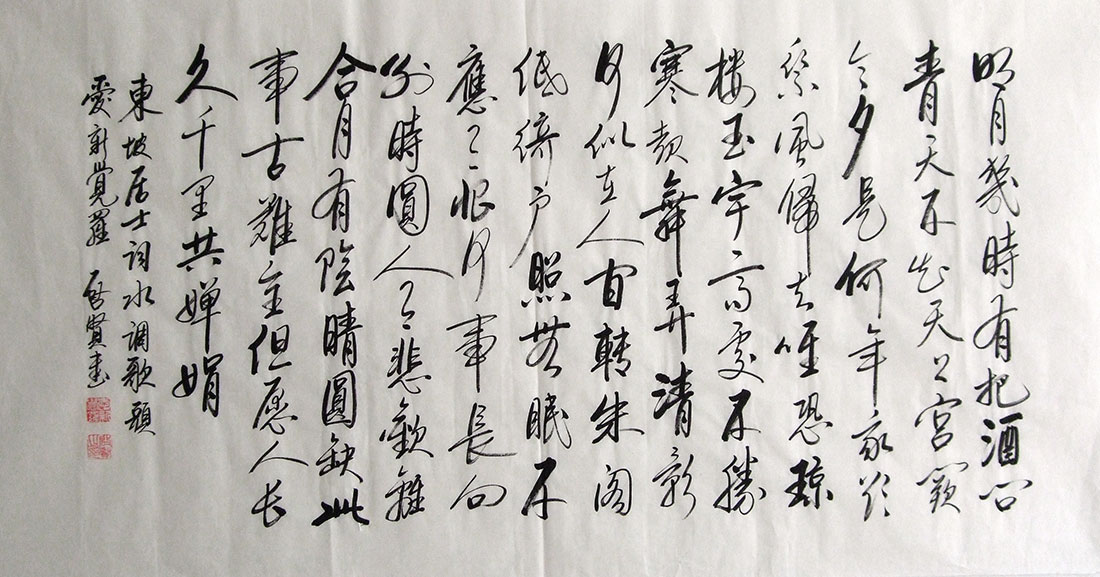 明月幾時有把酒问
青天不知天上宫闕
今夕是何年家欲
乘風歸去唯恐琼
楼玉宇高處不勝
寒起舞弄清影
何似在人间轉朱阁
低倚户照無眠不
應有恨何事長向
别時圓人有悲歡離
合月有陰晴圓缺此
事古難全但愿人长
久千里共婵娟
東坡居士詞水调歌頭
愛新覺羅 啓賢書